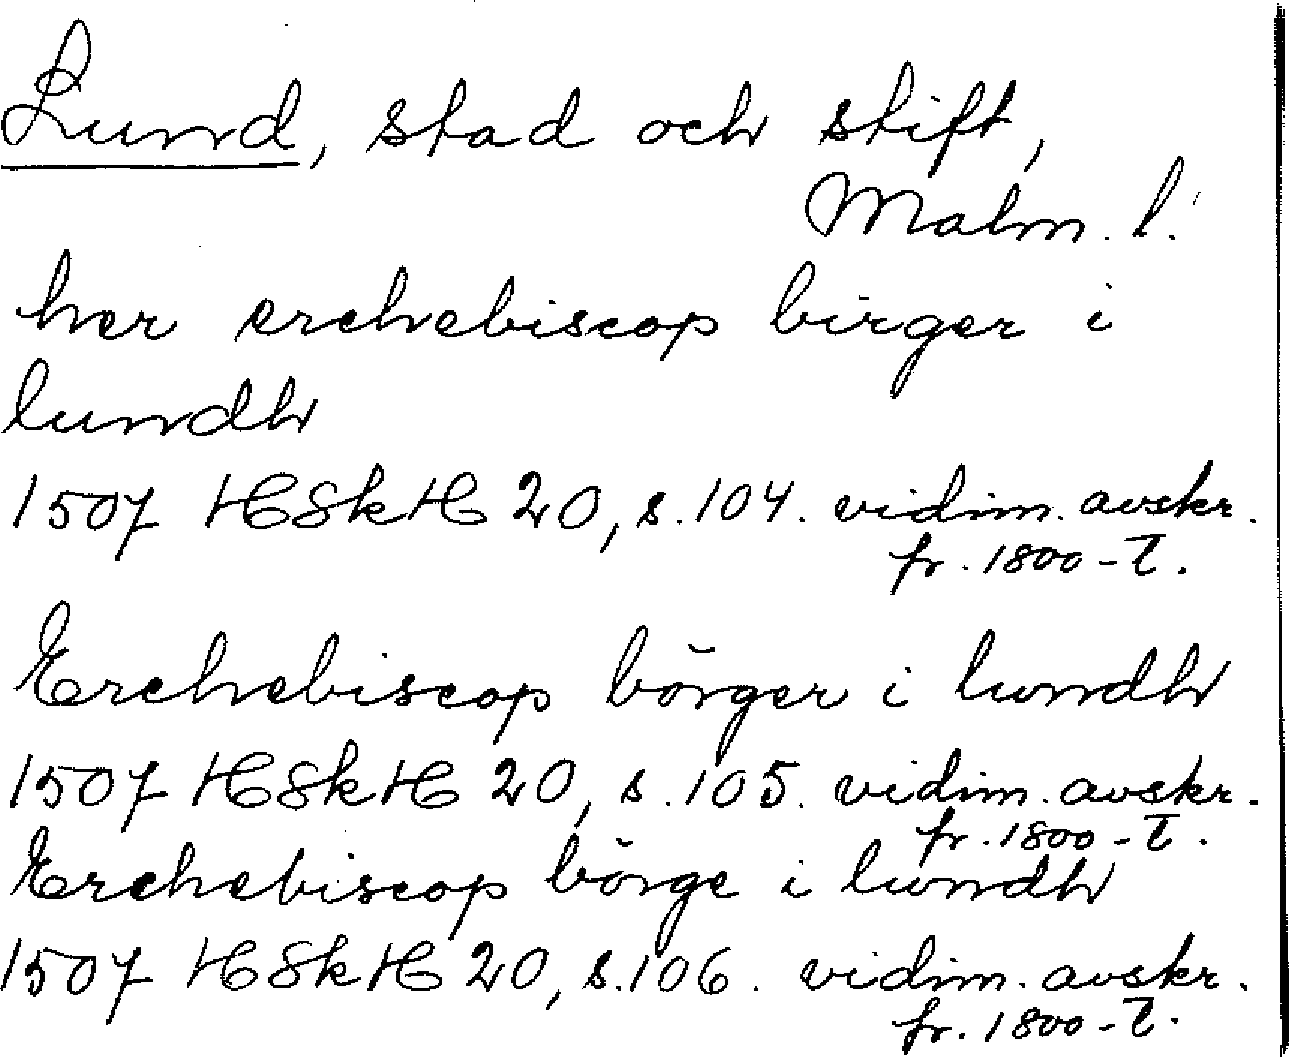 Lund, stad och stift,
Malm. l.
her erchebiscop birger i
lundh
1507 HSkH 20, s. 104. vidim. avskr.
fr. 1800-t.
Erchebiscop börger i lundh
1507 HSkH 20, s. 105. vidim. avskr.
fr. 1800-t.
Erchebiscop börge i lundh
1507 HSkH 20, s. 106. vidim. avskr.
fr. 1800-t.